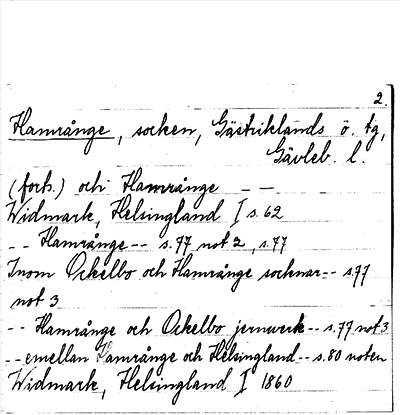 2.
Hamrånge, socken, Gästriklands ö. tg,
Gävleb. l.
(forts.) och Hamrånge - -
Widmark, Helsingland I s. 62
- - Hamrånge - - s. 77 not 2, s. 77
Inom Ockelbo och Hamrånge socknar - - s. 77
not 3
- - Hamrånge och Ockelbo jernverk - - s. 77 not 3
- - emellan Hamrånge och Helsingland - - s. 80 noten
Widmark, Helsingland I 1860